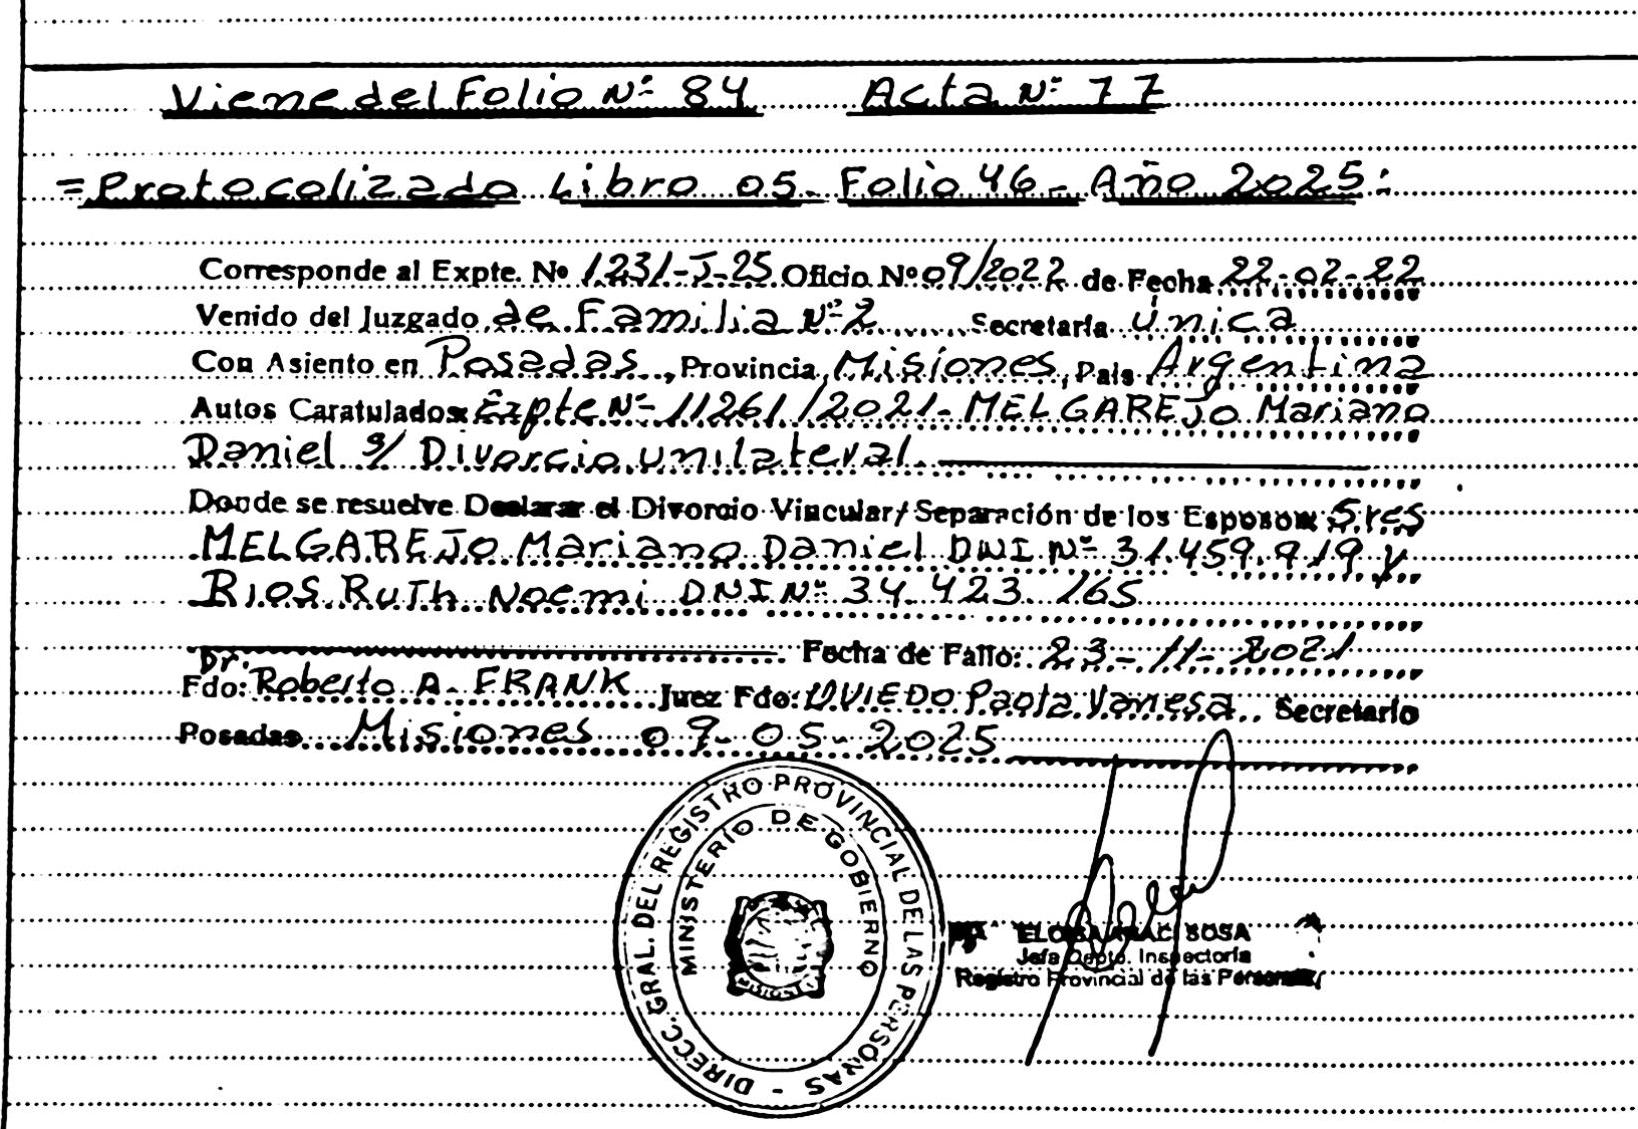 Viene del Folio Nº 84 Acta Nº 77
=Protocolizado Libro 05- Folio 46- Año 2025:
Corresponde al Expte. Nº 1231-J-25 Oficio Nº 09/2022 de Fecha 22-02-22
Venido del Juzgado de Familia Nº 2 Secretaría única
Con Asiento en Posadas, Provincia Misiones, País Argentina
Autos Caratulados: Expte Nº 11261/2021- MELGAREJO Mariano
Daniel s/ Divorcio unilateral.
Donde se resuelve Declarar el Divorcio Vincular/Separación de los Esposos: Sres
MELGAREJO Mariano Daniel DNI Nº 31.459.919 y
RIOS RuTh Noemi DNI Nº 34.423.165
Fecha de Fallo: 23-11-2021
Fdo: Dr. Roberto A. FRANK Juez Fdo: OVIEDO Paola Vanesa.. Secretario
Posadas Misiones 09-05-2025
DIRECC. GRAL. DEL REGISTRO PROVINCIAL DE LAS PERSONAS -
MINISTERIO DE GOBIERNO
MISIONES
ELOISA ARACI SOSA
Jefa Depto. Inspectoría
Registro Provincial de las Personas